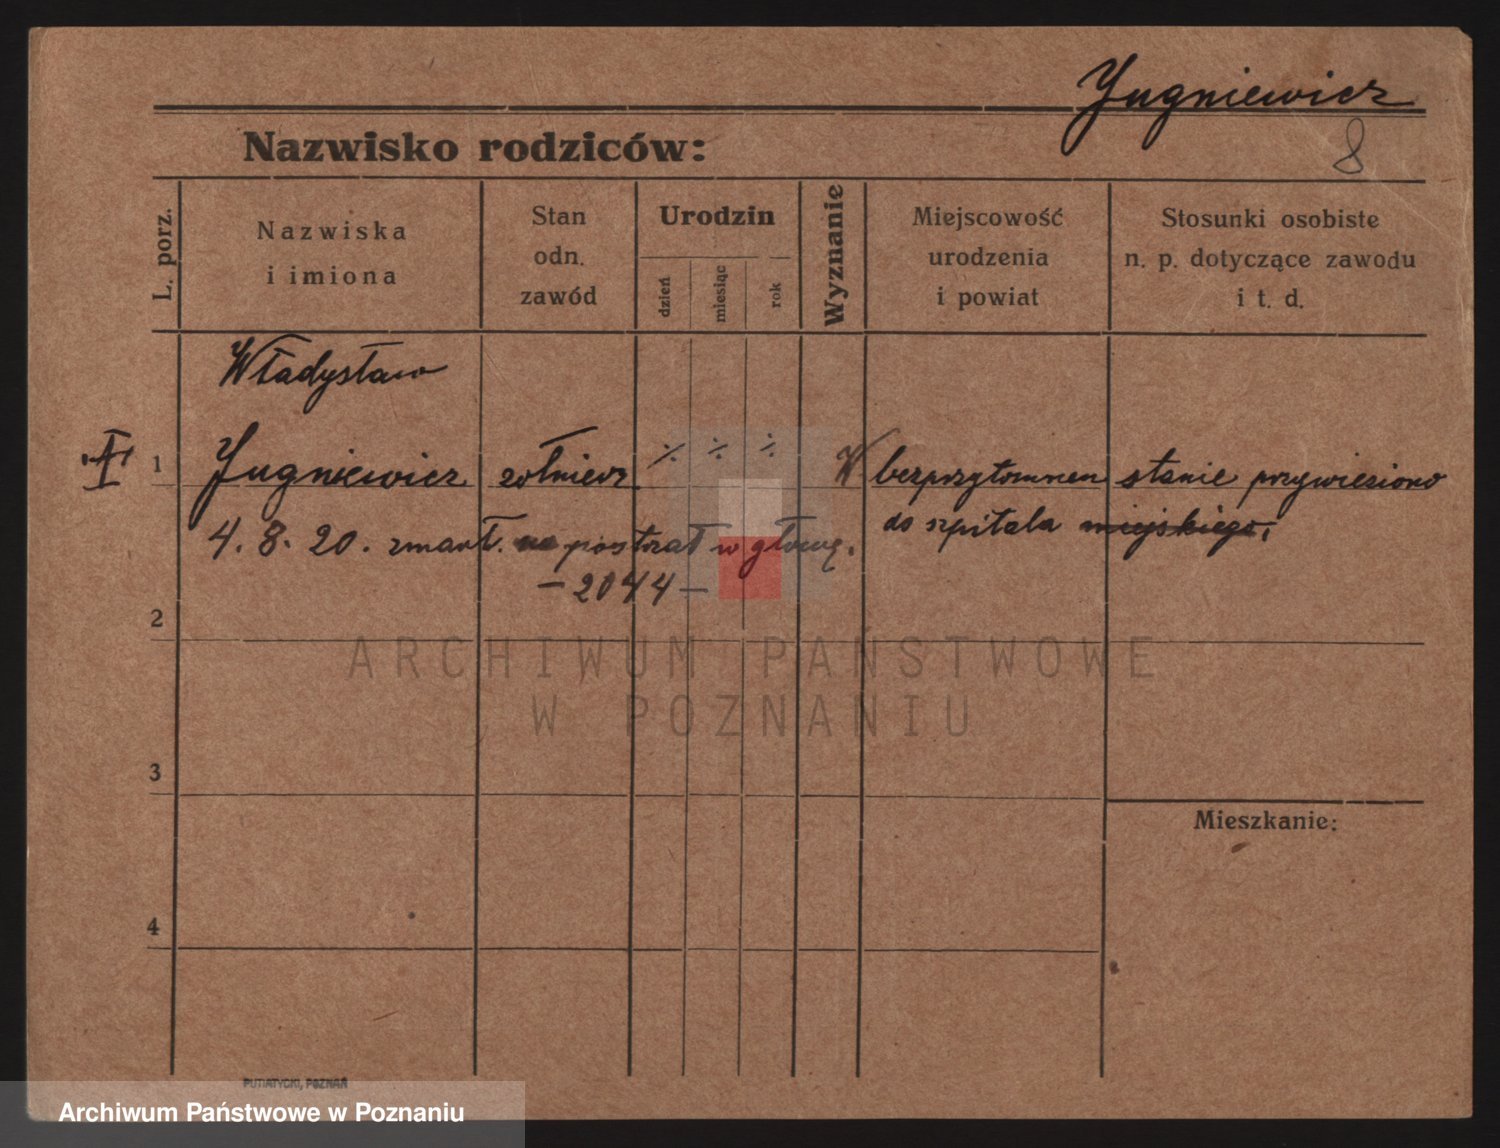 Jugniewicz
8
Nazwisko rodziców:
L. porz.
Nazwiska
i imiona
Stan
odn.
zawód
Urodzin
dzień
miesiąc
rok
Wyznanie
Miejscowość
urodzenia
i powiat
Stosunki osobiste
n. p. dotyczące zawodu
i t. d.
Władysław
1 Jugniewicz żołnierz ·/· ·/· ·/· W bezprzytomnem stanie przywieziono
do szpitala miejskiego,
4. 8. 20. zmarł. na postrzał w głowę.
– 2044 –
2
ARCHIWUM PAŃSTWOWE
W POZNANIU
3
Mieszkanie:
4
PUTIATYCKI, POZNAŃ
Archiwum Państwowe w Poznaniu